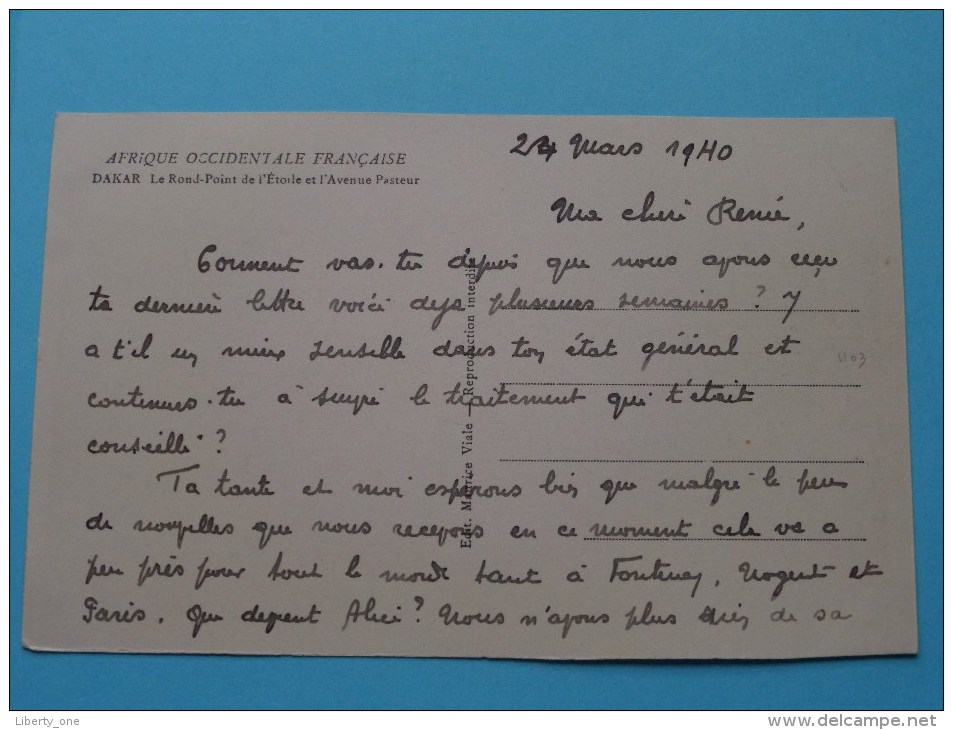 AFRIQUE OCCIDENTALE FRANÇAISE
DAKAR Le Rond-Point de l'Étoile et l'Avenue Pasteur
24 Mars 1940
Ma chère Renée,
Comment vas-tu depuis que nous avons reçu
ta dernière lettre voici déjà plusieurs semaines ? Y
a t'il un mieux sensible dans ton état général et
continues-tu à suivre le traitement qui t'était
conseillé ?
Ta tante et moi espérons bien que malgré le peu
de nouvelles que nous recevons en ce moment cela va a
peu près pour tout le monde tant à Fontenay, Nogent et
Paris. Que devient Alice ? Nous n'avons plus rien de sa
Edit. Maurice Viale — Reproduction interdite
1103
Liberty_one
www.delcampe.net